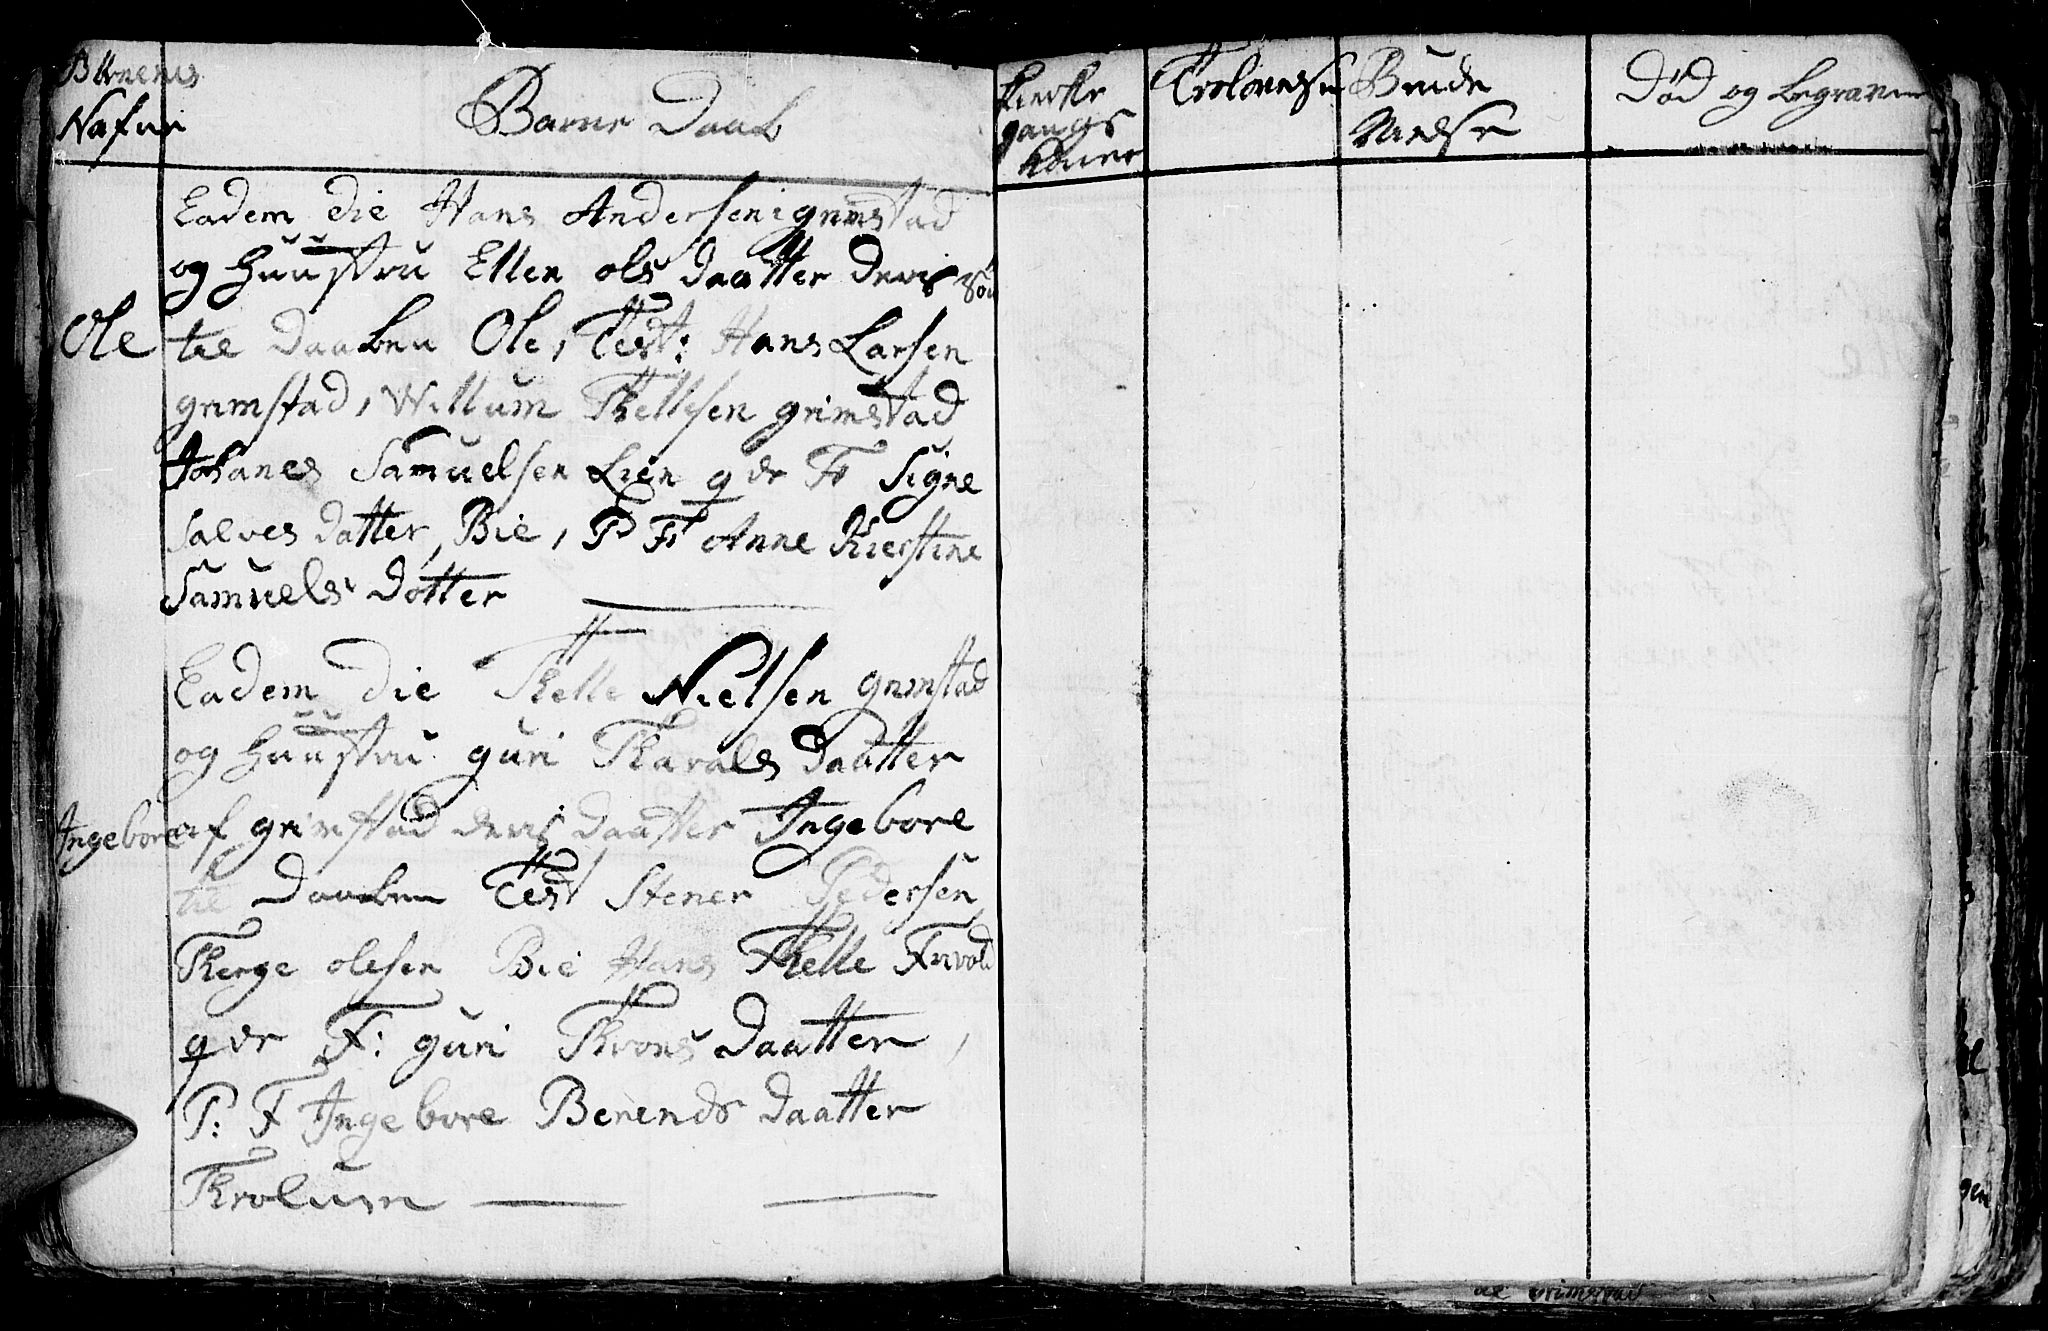 Børnenes
Nafne
Barne Daab
Kierke
gangs
Koner
Trolovelse
Brude
Vielse
Død og begraven
Eadem die Hans Andersen i grimstad
og Huustru Ellen ols daatter deris søn
Ole
til daaben Ole, Test: Hans Larsen
grimstad, Willum Thellesen grimstad
Johanes Samuelsen Lien q de F Signe
Salves datter, Bie, P F Anne Kierstine
Samuels dotter
Eadem die Thelle Nielsen grimstad
og Huustru guri Tharals daatter
Ingebore
af grimstad deris daatter Ingebore
til daaben Test Stener Pedersen
Therge olesen Bie Hans Thelle
q de F: guri Throns daatter,
P: F Ingebore Berends daatter
Throlum